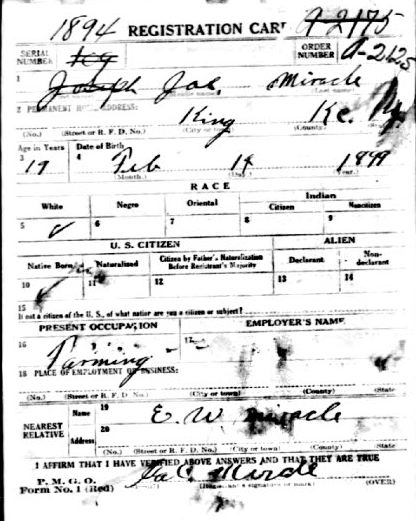 1894 REGISTRATION CARD A-2175
SERIAL NUMBER
ORDER NUMBER A-2125
1 Joseph Jac. Miracle
2 PERMANENT HOME ADDRESS: King Ky.
(No.) (Street or R. F. D. No.) (City or town) (County)
Age in Years Date of Birth
3 19 4 Feb 14 1899
(Month.) (Day.) (Year.)
RACE
White Negro Oriental Indian
Citizen Noncitizen
5 6 7 8 9
U. S. CITIZEN ALIEN
Native Born Naturalized Citizen by Father's Naturalization Before Registrant's Majority Declarant Non-declarant
10 11 12 13 14
15
If not a citizen of the U. S., of what nation are you a citizen or subject?
PRESENT OCCUPATION EMPLOYER'S NAME
16 17
Farming
18 PLACE OF EMPLOYMENT OR BUSINESS:
(No.) (Street or R. F. D. No.) (City or town) (County) (State
NEAREST RELATIVE
Name 19 E. W. Miracle
Address 20
(No.) (Street or R. F. D. No.) (City or town) (County) (State
I AFFIRM THAT I HAVE VERIFIED ABOVE ANSWERS AND THAT THEY ARE TRUE
P. M. G. O.
Form No. 1 (Red) (Registrant's signature or mark) (OVER)